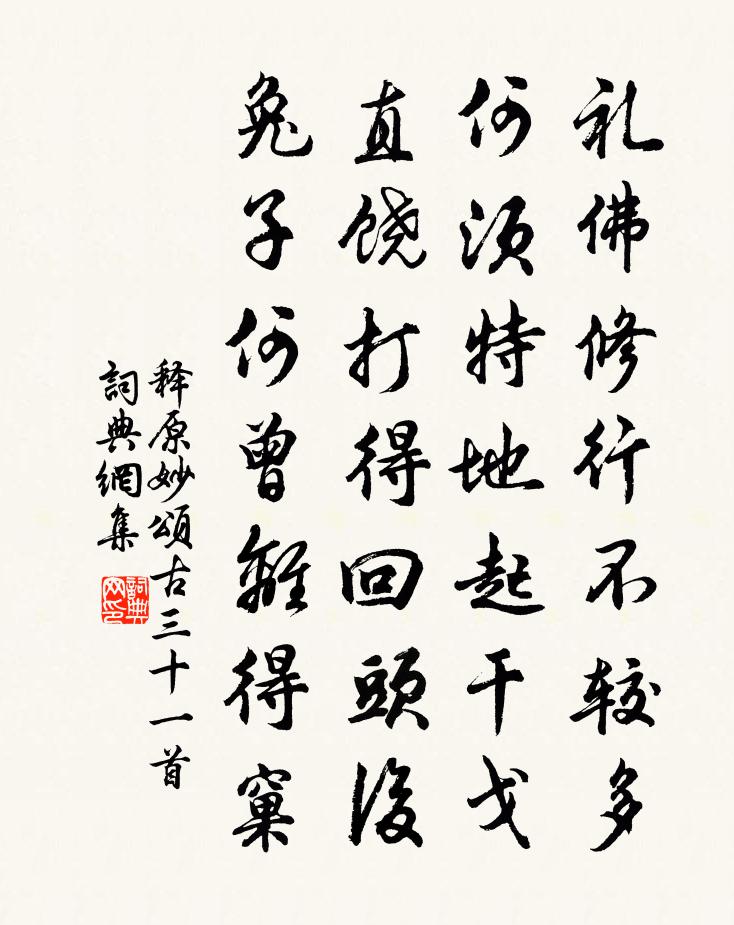 礼佛修行不较多
何须特地起干戈
直饶打得回頭後
兔子何曾離得窠
释原妙頌古三十一首
詞典網集
詞典網印